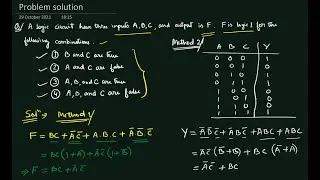 Problem solution
29 October 2021 18:25
Q/ A logic circuit have three inputs A, B, C, and output is F. F is logic 1 for the following combinations:-
① B and C are true
② A and C are false
③ A, B, and C are true
④ A, B, and C are false
Solⁿ → Method 1/
F = BC + A̅C̅ + A.B.C + A̅B̅C̅
= BC(1+A) + A̅C̅(1+B̅)
⇒ F = BC + A̅C̅
Method 2/
A B C Y
0 0 0 1
0 0 1
0 1 0 1
0 1 1 1
1 0 0
1 0 1
1 1 0
1 1 1 1
Y = A̅B̅C̅ + A̅BC̅ + A̅BC + ABC
= A̅C̅(B̅+B) + BC(A̅+A)
= A̅C̅ + BC